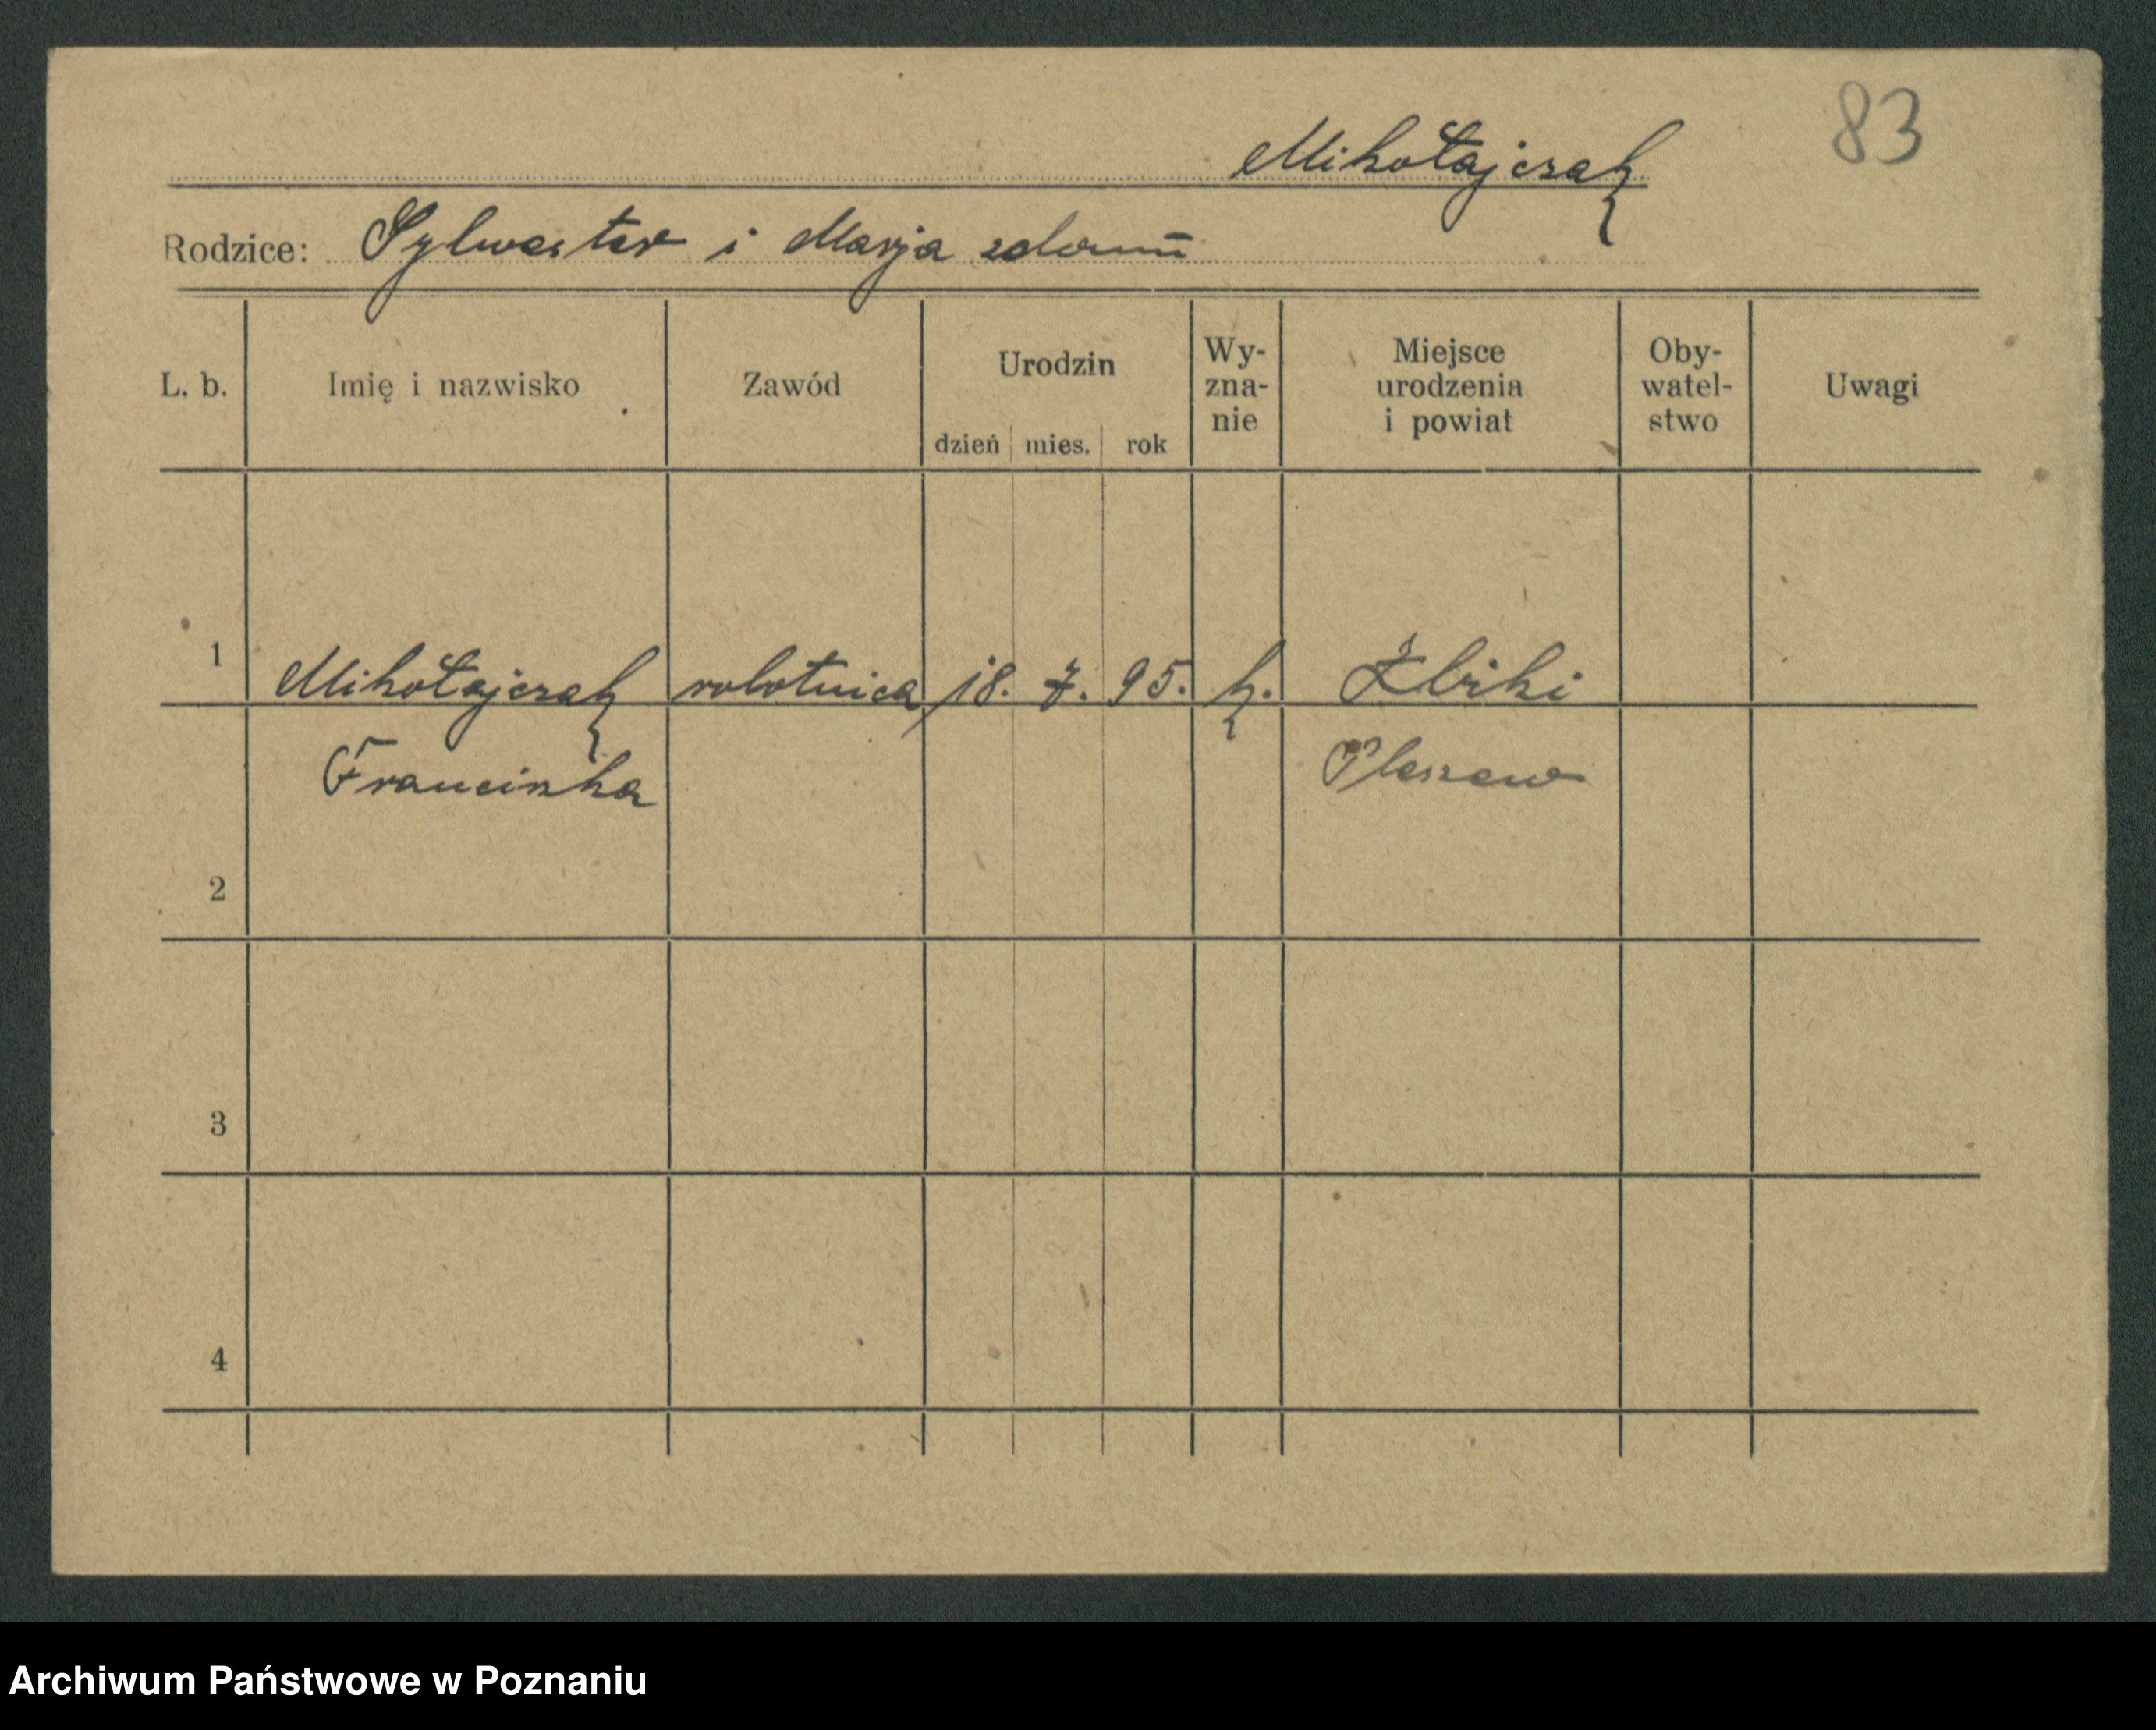 83
Mikołajczak
Rodzice: Sylwester i Marja
L. b.
Imię i nazwisko
Zawód
Urodzin
dzień mies. rok
Wy-
zna-
nie
Miejsce
urodzenia
i powiat
Oby-
watel-
stwo
Uwagi
1 Mikołajczak robotnica 18. 7. 95. k. Żbiki
Franciszka Pleszew
2
3
4
Archiwum Państwowe w Poznaniu